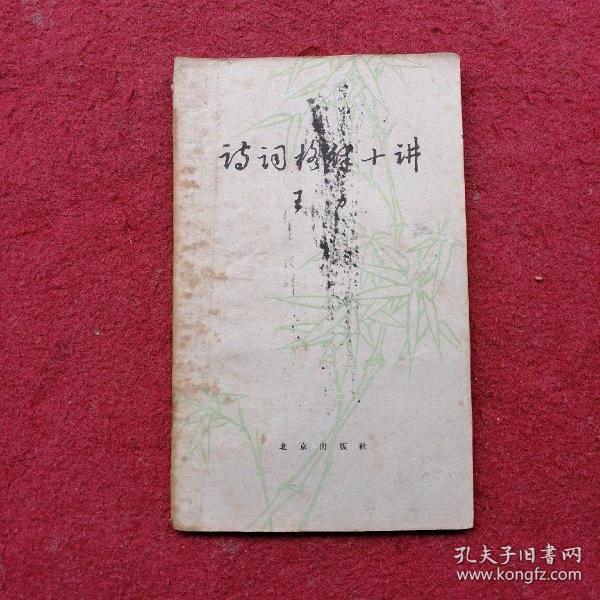 诗词格律十讲
王力
北京出版社
孔夫子旧书网
www.kongfz.com